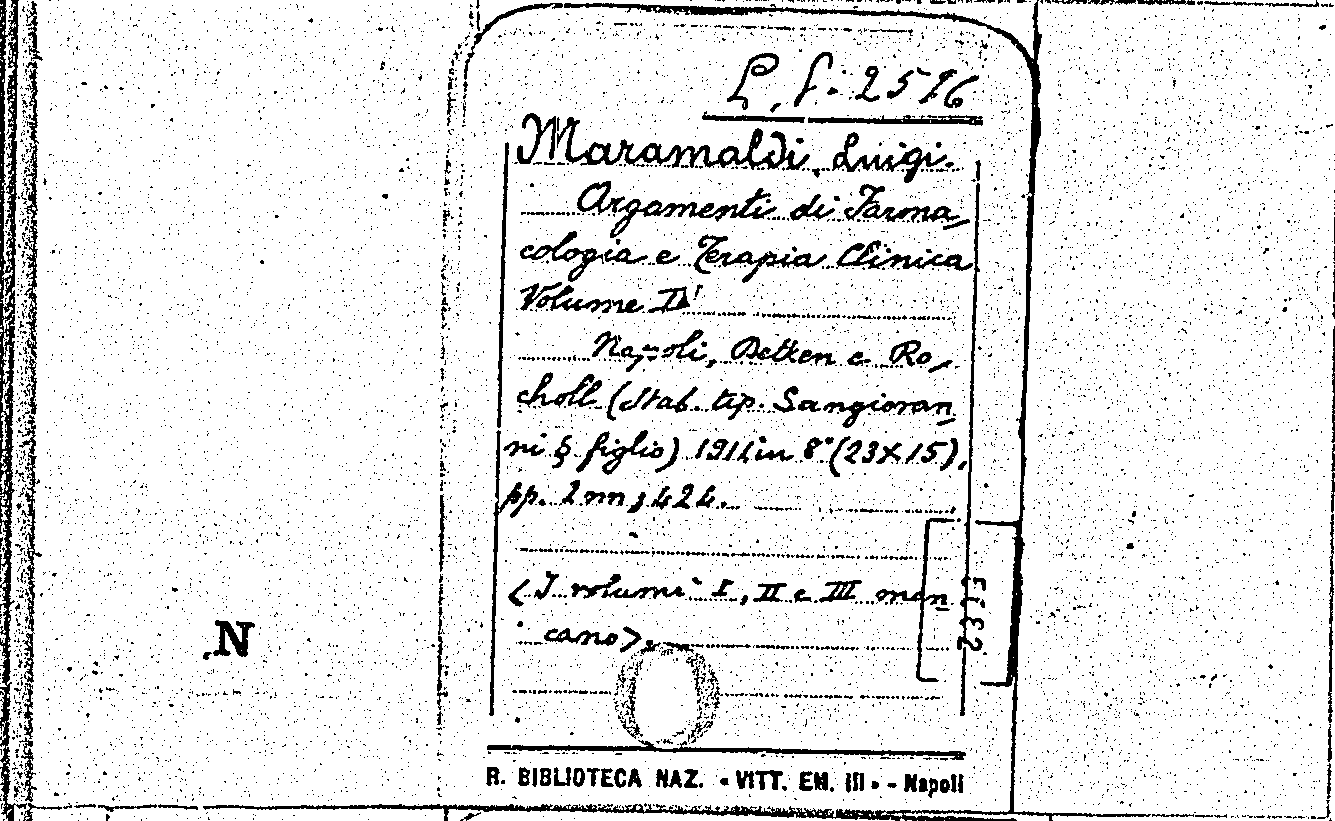 L. f. 2596
Maramaldi, Luigi.
Argamenti di Farma
cologia e Terapia Clinica
Volume IV
Napoli, Detken e Ro,
choll (Stab. tip. Sangiovan
ni & figlio) 1911 in 8° (23X15),
pp. 2 nn, 424.
<I volumi I, II e III man
cano>.
N
R. BIBLIOTECA NAZ. « VITT. EM. III » - Napoli